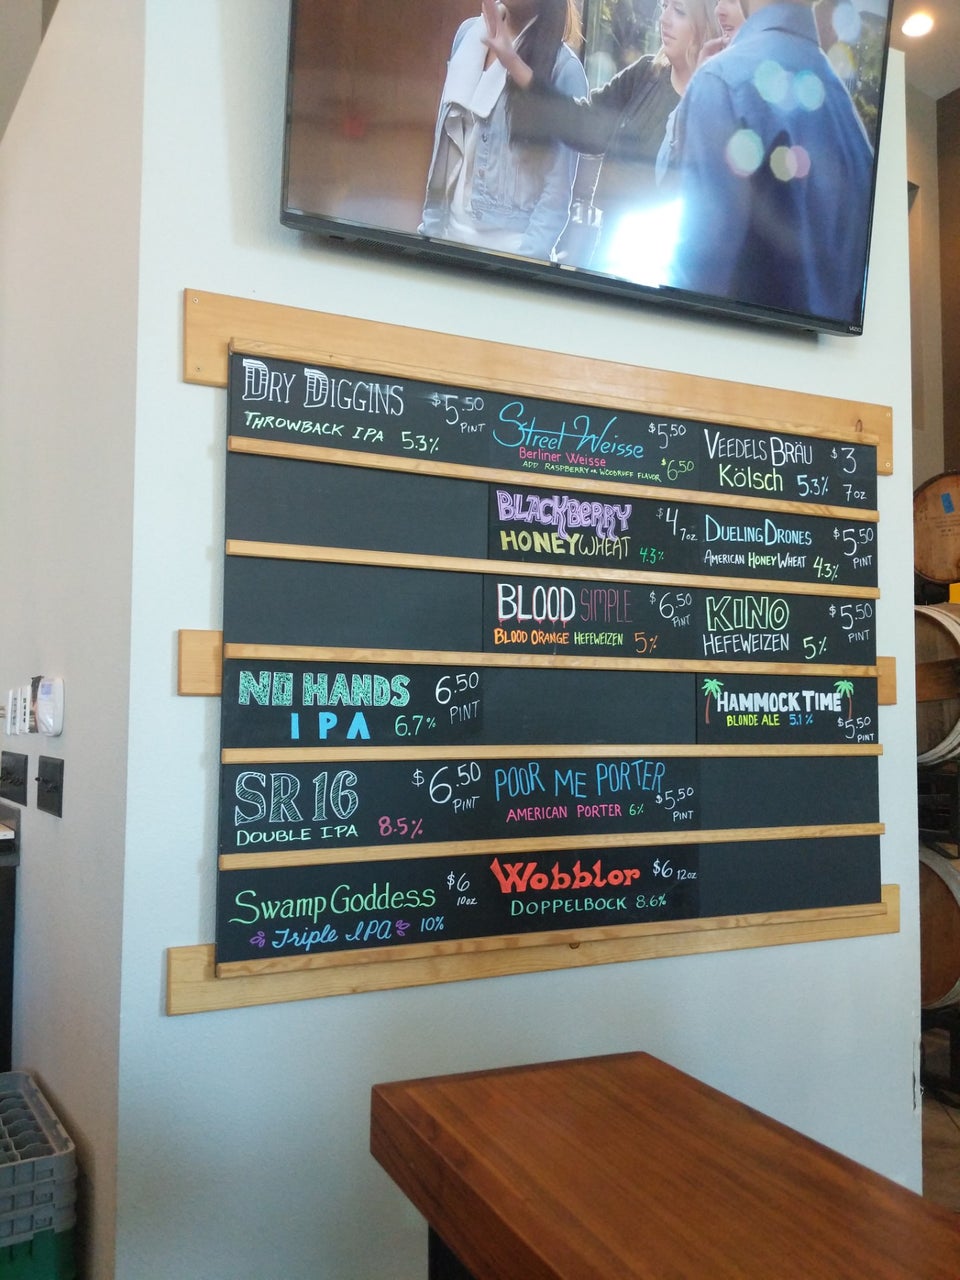 VIZIO
DRY DIGGINS $5.50
THROWBACK IPA 5.3% PINT
Street Weisse $5.50
Berliner Weisse
ADD RASPBERRY OR WOODRUFF FLAVOR $6.50
VEEDELS BRÄU $3
Kölsch 5.3% 7oz
BLACKBERRY $4 7oz
HONEY WHEAT 4.3%
DUELING DRONES $5.50
AMERICAN HONEY WHEAT 4.3% PINT
BLOOD SIMPLE $6.50 PINT
BLOOD ORANGE HEFEWEIZEN 5%
KINO $5.50
HEFEWEIZEN 5% PINT
NO HANDS 6.50
IPA 6.7% PINT
HAMMOCK TIME
BLONDE ALE 5.1% $5.50
PINT
SR 16 $6.50
DOUBLE IPA 8.5% PINT
POOR ME PORTER $5.50
AMERICAN PORTER 6% PINT
Swamp Goddess $6
10oz
Triple IPA 10%
Wobblor $6 12oz
DOPPELBOCK 8.6%